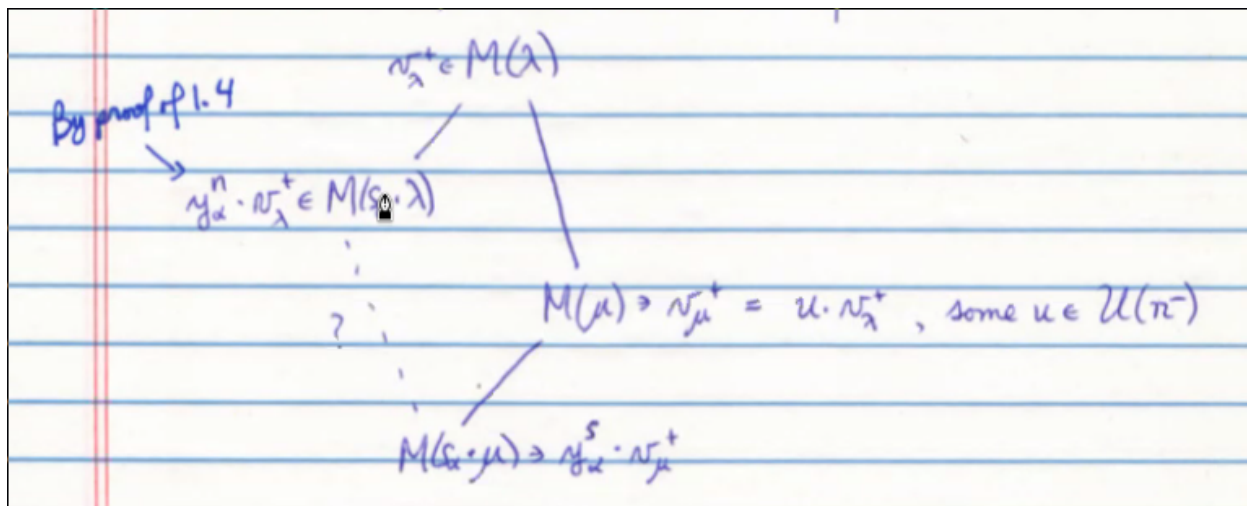 v_λ^+ ∈ M(λ)
By proof of 1.4
y_α^n · v_λ^+ ∈ M(s_α · λ)
M(μ) ∋ v_μ^+ = u · v_λ^+ , some u ∈ U(n^-)
?
M(s_α · μ) ∋ y_α^s · v_μ^+